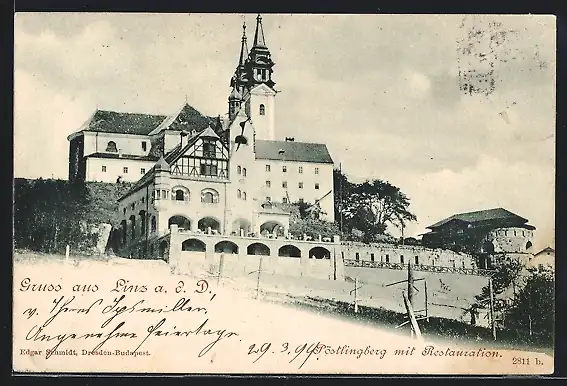 Gruss aus Linz a. d. D.
Angenehme Feiertage
29.3.99
Pöstlingberg mit Restauration.
Edgar Schmidt, Dresden-Budapest.
2811 b.